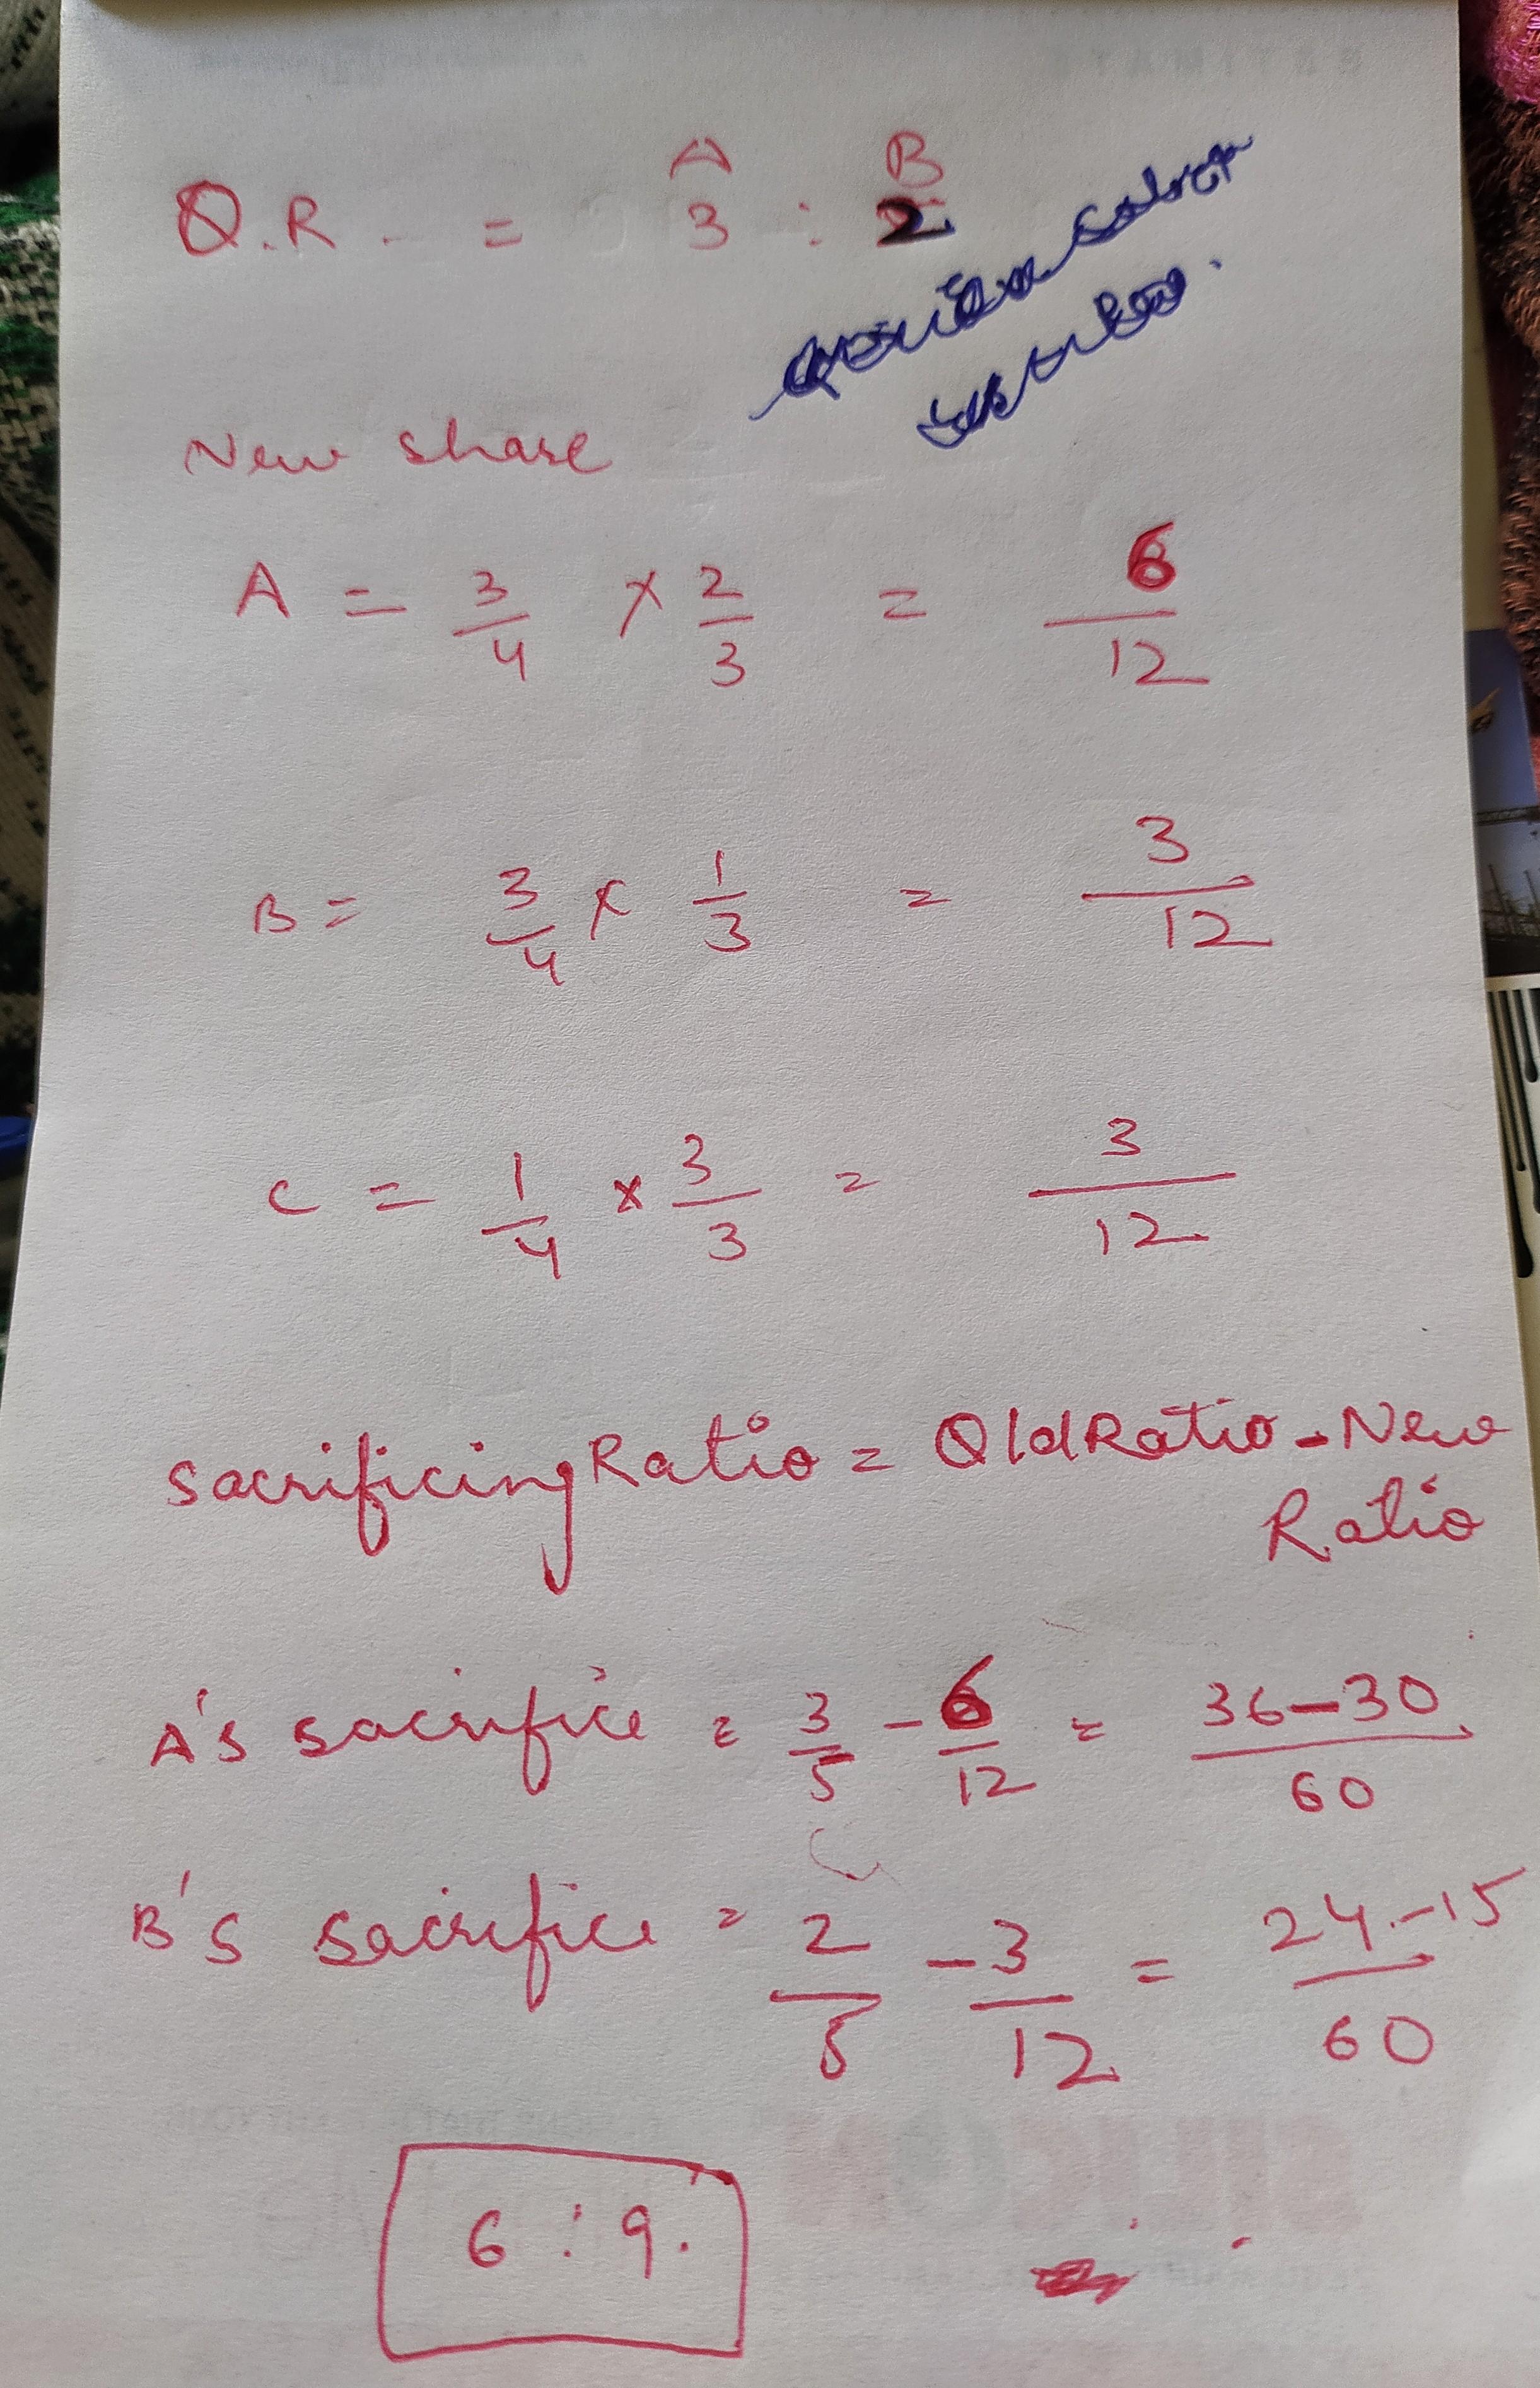 A B
O.R. = 3 : 2
New share
A = 3/4 × 2/3 = 6/12
B = 3/4 × 1/3 = 3/12
C = 1/4 × 3/3 = 3/12
Sacrificing Ratio = Old Ratio - New
Ratio
A's sacrifice = 3/5 - 6/12 = 36-30/60
B's sacrifice = 2/5 - 3/12 = 24-15/60
6 : 9.